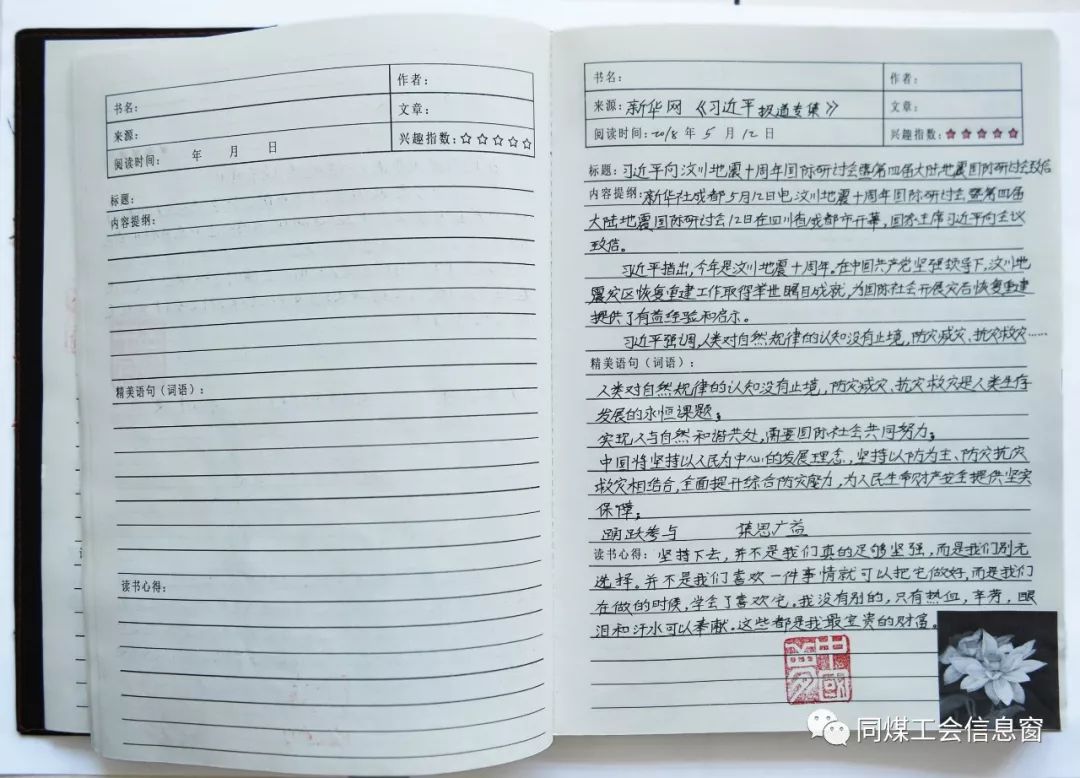 书名：
作者：
来源：
文章：
阅读时间： 年 月 日
兴趣指数：☆☆☆☆☆
标题：
内容提纲：
精美语句（词语）：
读书心得：
书名：
作者：
来源：新华网《习近平报道专集》
文章：
阅读时间：2018年5月12日
兴趣指数：★★★★★
标题：习近平向汶川地震十周年国际研讨会暨第四届大陆地震国际研讨会致信
内容提纲：新华社成都5月12日电 汶川地震十周年国际研讨会暨第四届
大陆地震国际研讨会12日在四川省成都市开幕，国家主席习近平向会议
致信。
习近平指出，今年是汶川地震十周年。在中国共产党坚强领导下，汶川地
震灾区恢复重建工作取得举世瞩目成就，为国际社会开展灾后恢复重建
提供了有益经验和启示。
习近平强调，人类对自然规律的认知没有止境，防灾减灾、抗灾救灾……
精美语句（词语）：
人类对自然规律的认知没有止境，防灾减灾、抗灾救灾是人类生存
发展的永恒课题；
实现人与自然和谐共处，需要国际社会共同努力；
中国将坚持以人民为中心的发展理念，坚持以防为主、防灾抗灾
救灾相结合，全面提升综合防灾能力，为人民生命财产安全提供坚实
保障；
踊跃参与 集思广益
读书心得：坚持下去，并不是我们真的足够坚强，而是我们别无
选择。并不是我们喜欢一件事情就可以把它做好，而是我们
在做的时候，学会了喜欢它。我没有别的，只有热血，辛劳，眼
泪和汗水可以奉献。这些都是我最宝贵的财富。
中国
同煤工会信息窗